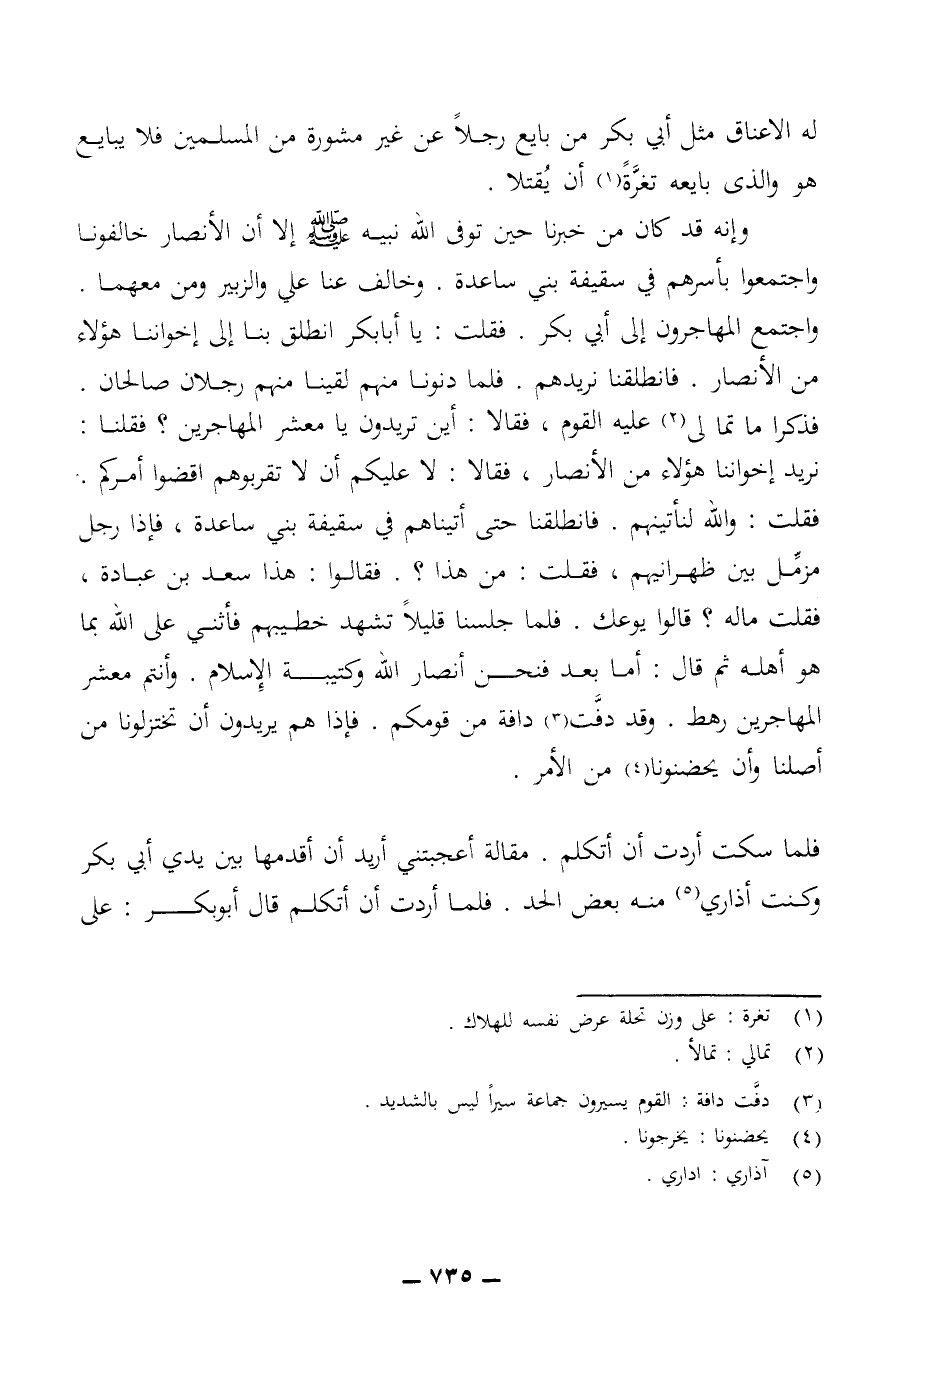 له الاعناق مثل أبي بكر من بايع رجلاً عن غير مشورة من المسلمين فلا يبايع
هو والذى بايعه تغرَّةً(١) أن يُقتلا .
وإنه قد كان من خبرنا حين توفى الله نبيه ﷺ إلا أن الأنصار خالفونا
واجتمعوا بأسرهم في سقيفة بني ساعدة . وخالف عنا علي والزبير ومن معهما .
واجتمع المهاجرون إلى أبي بكر . فقلت : يا أبابكر انطلق بنا إلى إخواننا هؤلاء
من الأنصار . فانطلقنا نريدهم . فلما دنونا منهم لقينا منهم رجلان صالحان .
فذكرا ما تما لى(٢) عليه القوم ، فقالا : أين تريدون يا معشر المهاجرين ؟ فقلنا :
نريد إخواننا هؤلاء من الأنصار ، فقالا : لا عليكم أن لا تقربوهم اقضوا أمركم .
فقلت : والله لنأتينهم . فانطلقنا حتى أتيناهم في سقيفة بني ساعدة ، فإذا رجل
مزمِّل بين ظهرانيهم ، فقلت : من هذا ؟ . فقالوا : هذا سعد بن عبادة ،
فقلت ماله ؟ قالوا يوعك . فلما جلسنا قليلاً تشهد خطيبهم فأثني على الله بما
هو أهله ثم قال : أما بعد فنحن أنصار الله وكتيبة الإسلام . وأنتم معشر
المهاجرين رهط . وقد دفَّت(٣) دافة من قومكم . فإذا هم يريدون أن تختزلونا من
أصلنا وأن يحضنونا(٤) من الأمر .
فلما سكت أردت أن أتكلم . مقالة أعجبتني أريد أن أقدمها بين يدي أبي بكر
وكنت أذاري(٥) منه بعض الحد . فلما أردت أن أتكلم قال أبوبكر : على
(١) تغرة : على وزن تحلة عرض نفسه للهلاك .
(٢) تمالي : تمالأ .
(٣) دفَّت دافة : القوم يسيرون جماعة سيراً ليس بالشديد .
(٤) يحضنونا : يخرجونا .
(٥) آذاري : اداري .
ــ ٧٣٥ ــ